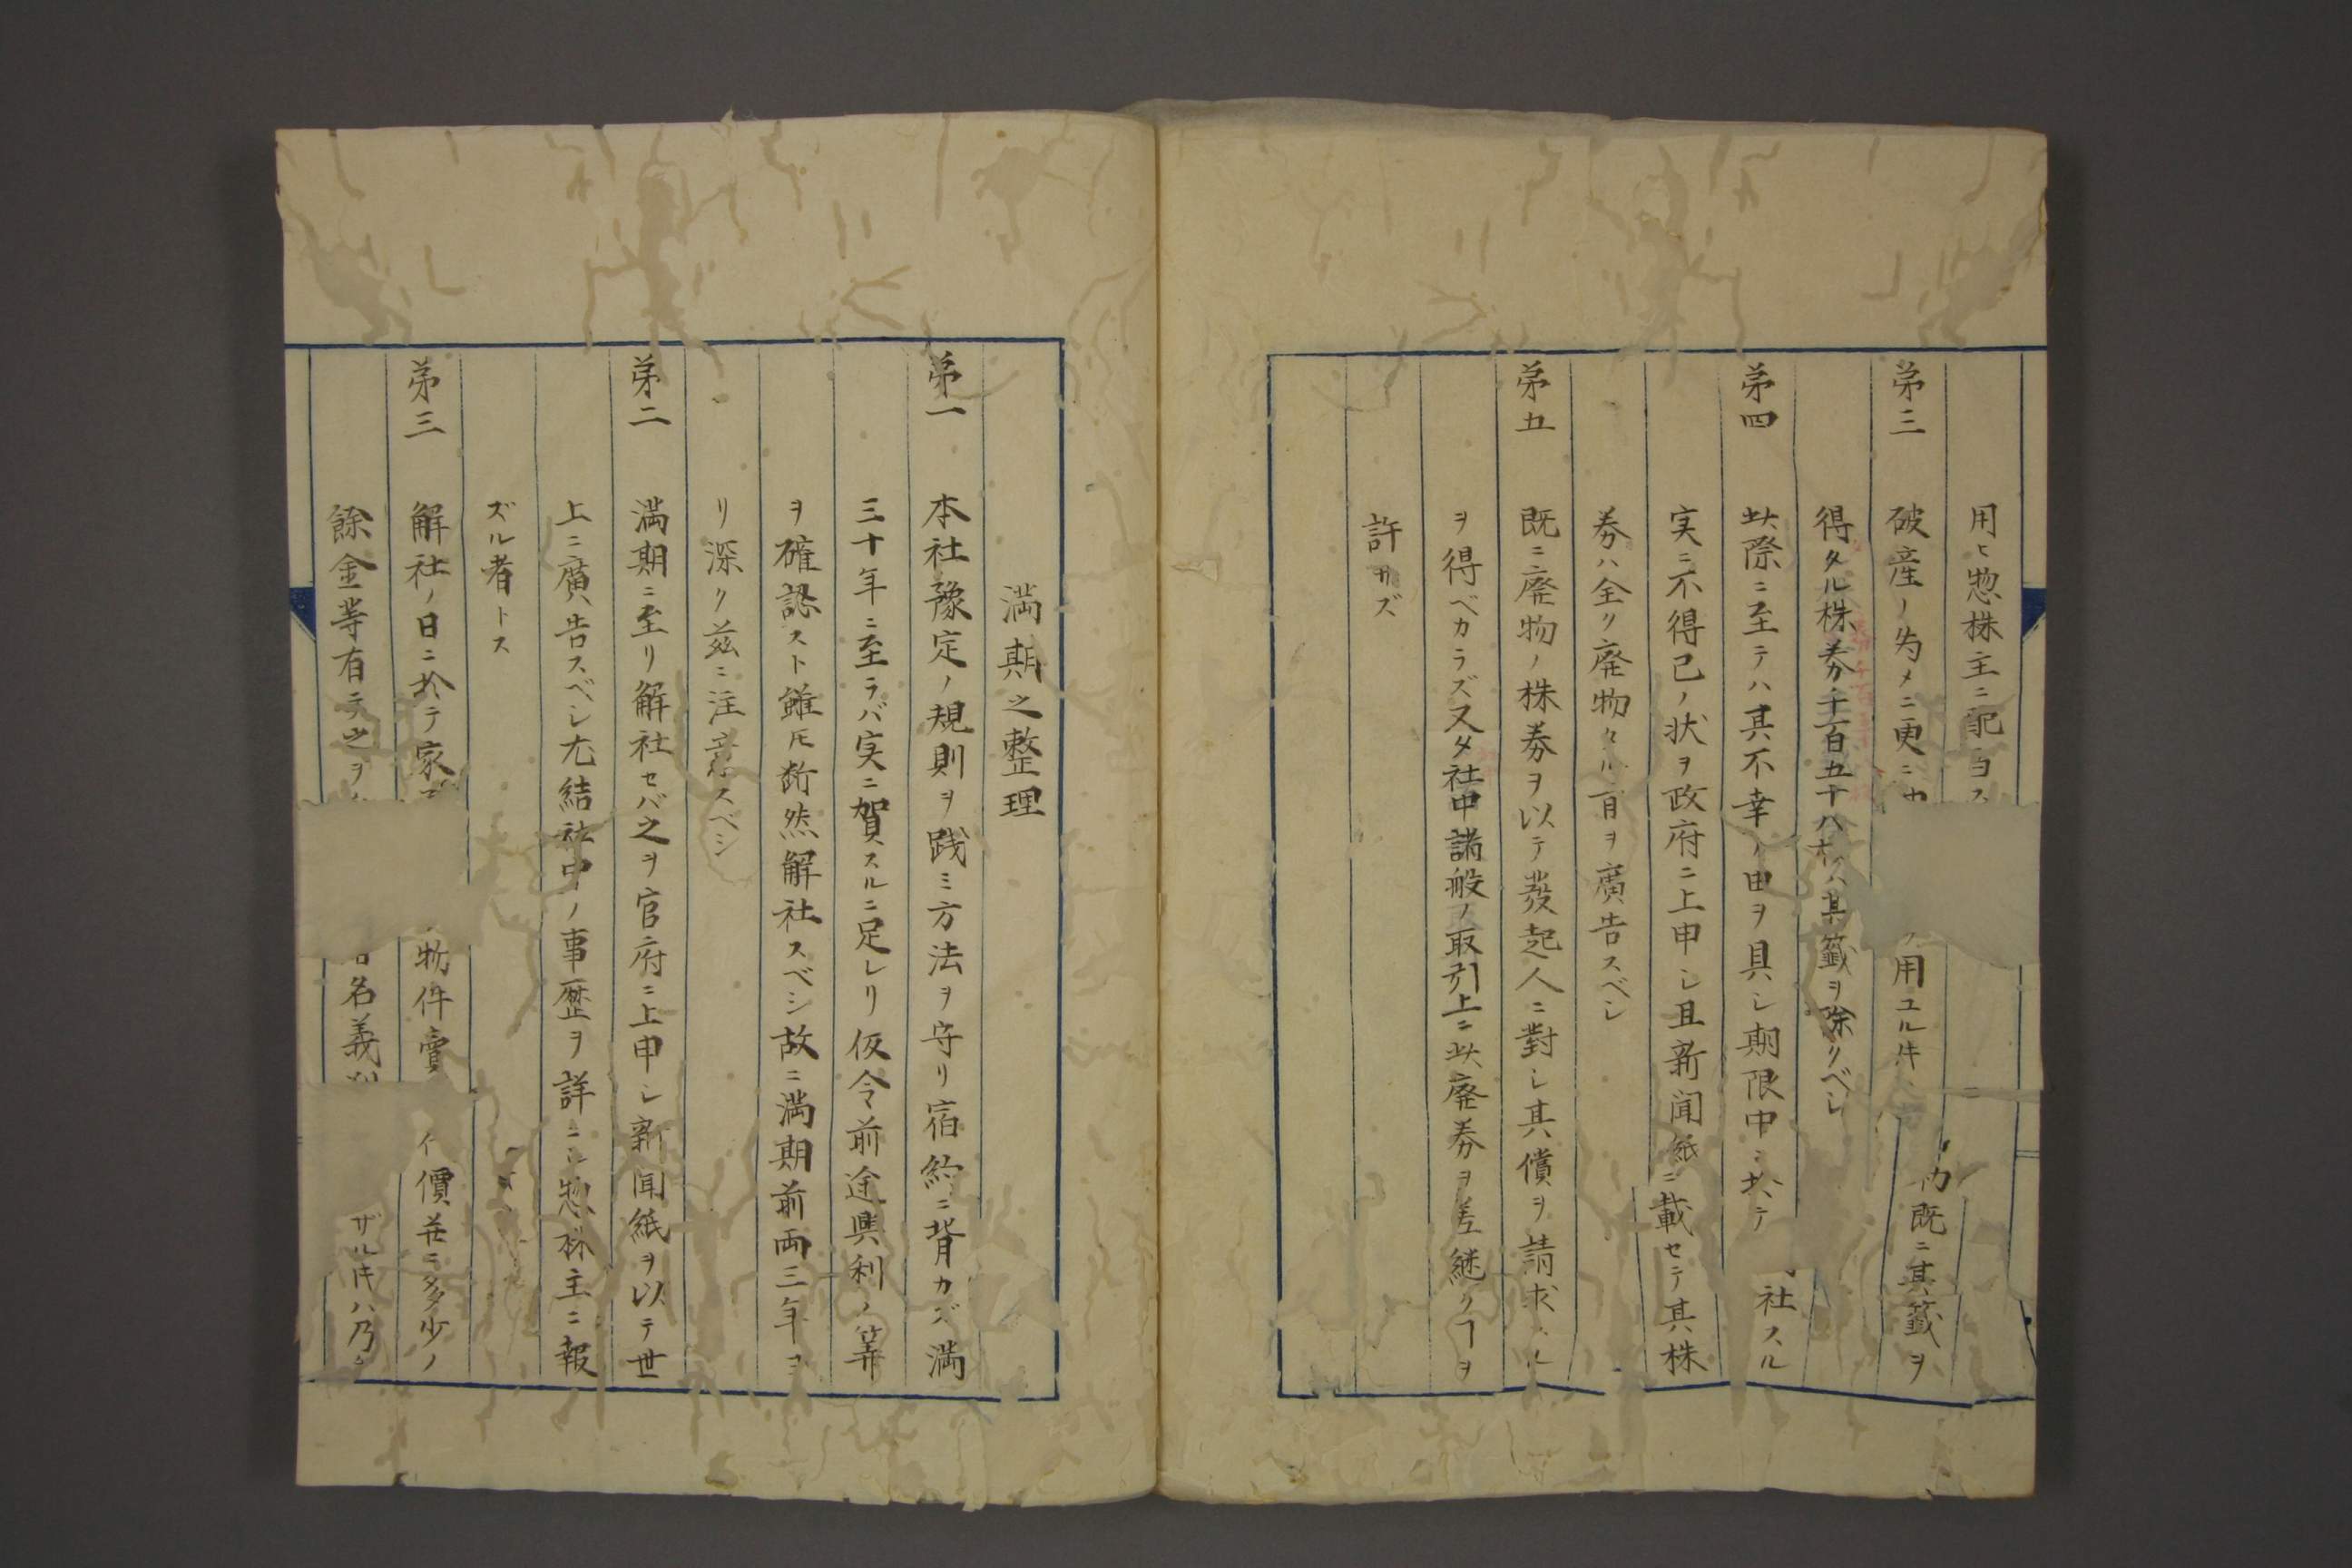 用ヒ惣株主ニ配
第三 破産ノ為メニ更ニ 用ユル 既ニ其籤ヲ
得タル株券千百五十八 ハ其籤ヲ除クベシ
第四 此際ニ至テハ其不幸ノ由ヲ具シ期限中ニ於テ 社スル
実ニ不得已ノ状ヲ政府ニ上申シ且新聞紙ニ載セテ其株
券ハ全ク廃物タル旨ヲ廣告スベシ
第五 既ニ廃物ノ株券ヲ以テ發起人ニ對シ其償ヲ請求スル
ヲ得ベカラズ又タ社中諸般ノ取引上ニ此廃券ヲ差継クヿヲ
許サズ
満期之整理
第一 本社豫定ノ規則ヲ践ミ方法ヲ守リ宿約ニ背カズ満
三十年ニ至ラバ実ニ賀スルニ足レリ仮令前途興利ノ筭
ヲ確認スト雖𪜈断然解社スベシ故ニ満期前両三年ヨ
リ深ク茲ニ注意スベシ
第二 満期ニ至リ解社セバ之ヲ官府ニ上申シ新聞紙ヲ以テ世
上ニ廣告スベシ尤結社中ノ事歴ヲ詳ニシ惣株主ニ報
ズル者トス
第三 解社ノ日ニ於テ家 物件賣 價並ニ多少ノ
餘金等有テ之ヲ 名義 ザル ハ乃